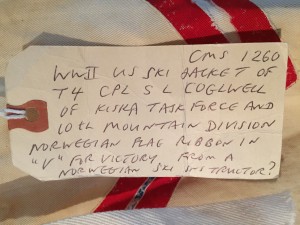 CMS 1260
WWII US SKI JACKET OF
T4 CPL S L COGLWELL
OF KISKA TASK FORCE AND
10TH MOUNTAIN DIVISION
NORWEGIAN FLAG RIBBON IN
"V" FOR VICTORY, FROM A
NORWEGIAN SKI INSTRUCTOR?